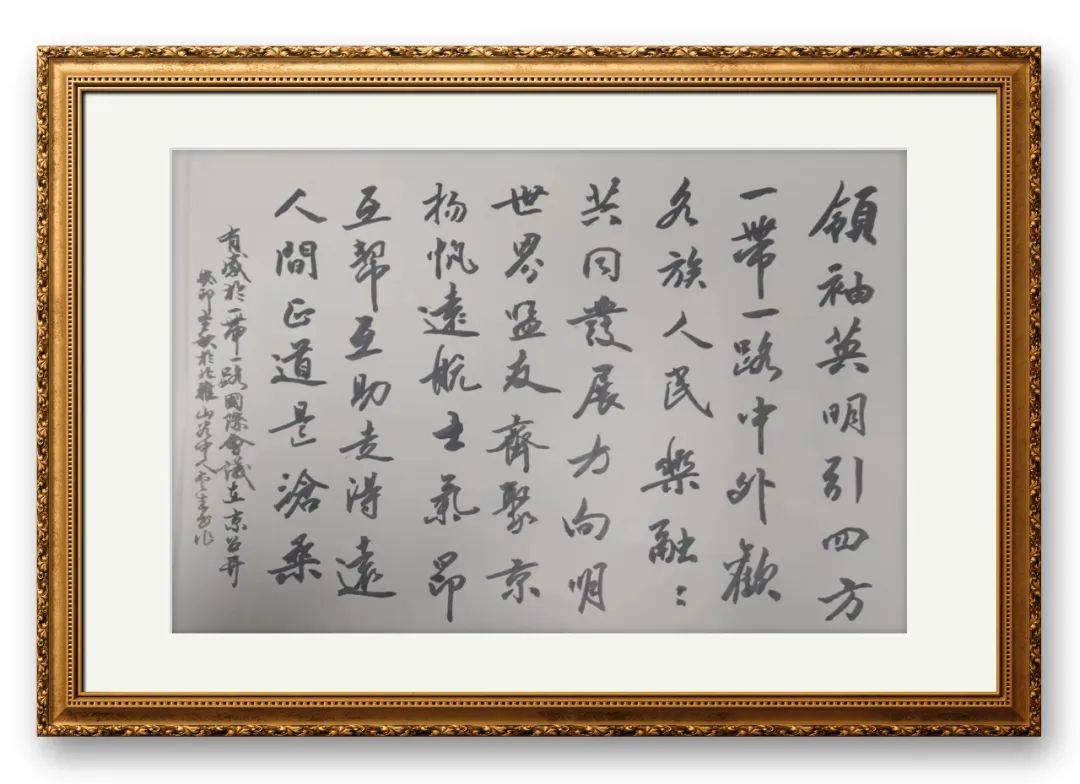 領袖英明引四方
一帶一路中外歡
各族人民樂融〻
共同發展力向明
世界盟友齊聚京
揚帆遠航士氣昂
互幫互助走得遠
人間正道是滄桑
有感於一帶一路國際會議在京召開
癸卯 於 山 中人 書作